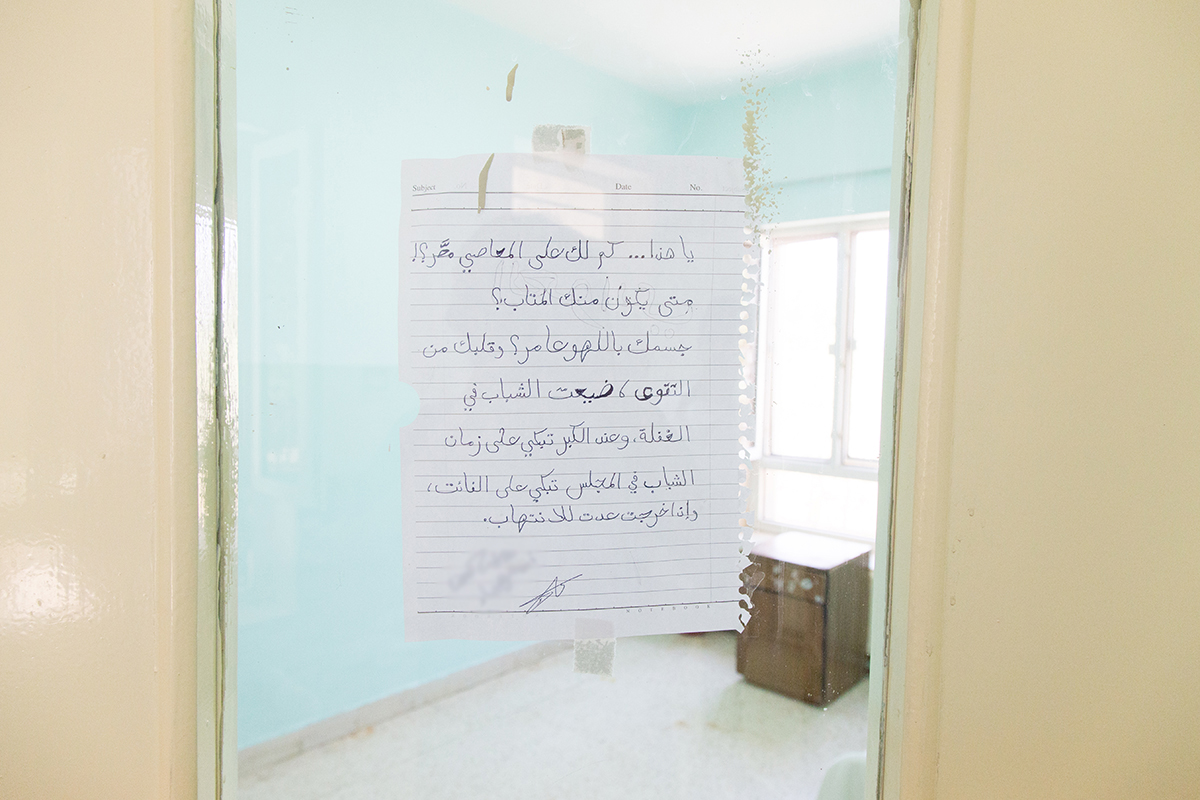 Subject Date No.
يا هذا... كم لك على المعاصي مصر؟!
متى يكون منك المتاب؟
جسمك باللهو عامر؟ وقلبك من
التقوى، ضيعت الشباب في
الغفلة، وعند الكبر تبكي على زمان
الشباب في المجلس تبكي على الفائت،
وإذا خرجت عدت للانتهاب.
NOTEBOOK